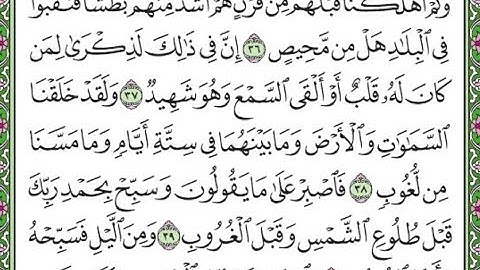 وَكَمْ أَهْلَكْنَا قَبْلَهُم مِّن قَرْنٍ هُمْ أَشَدُّ مِنْهُم بَطْشًا فَنَقَّبُوا۟
فِى ٱلْبِلَٰدِ هَلْ مِن مَّحِيصٍ ٣٦ إِنَّ فِى ذَٰلِكَ لَذِكْرَىٰ لِمَن
كَانَ لَهُۥ قَلْبٌ أَوْ أَلْقَى ٱلسَّمْعَ وَهُوَ شَهِيدٌ ٣٧ وَلَقَدْ خَلَقْنَا
ٱلسَّمَٰوَٰتِ وَٱلْأَرْضَ وَمَا بَيْنَهُمَا فِى سِتَّةِ أَيَّامٍ وَمَا مَسَّنَا
مِن لُّغُوبٍ ٣٨ فَٱصْبِرْ عَلَىٰ مَا يَقُولُونَ وَسَبِّحْ بِحَمْدِ رَبِّكَ
قَبْلَ طُلُوعِ ٱلشَّمْسِ وَقَبْلَ ٱلْغُرُوبِ ٣٩ وَمِنَ ٱلَّيْلِ فَسَبِّحْهُ